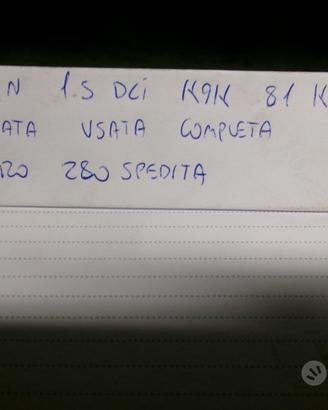 N 1.5 DCi K9K 81 K
ATA USATA COMPLETA
280 SPEDITA